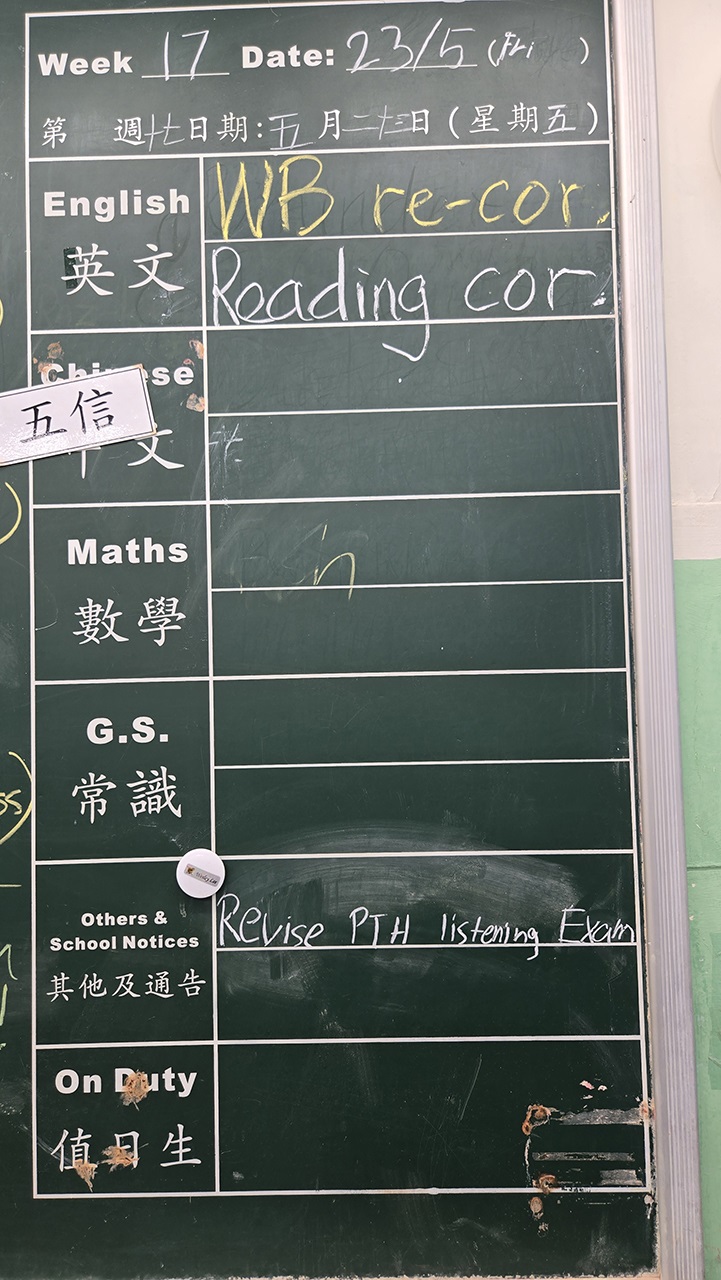 Week 17 Date: 23/5 (Fri)
第 週十七日期:五月二十三日(星期五)
English
英文
WB re-cor.
Reading cor.
Chinese
中文
五信
Maths
數學
G.S.
常識
Others &
School Notices
其他及通告
Revise PTH listening Exam
On Duty
值日生